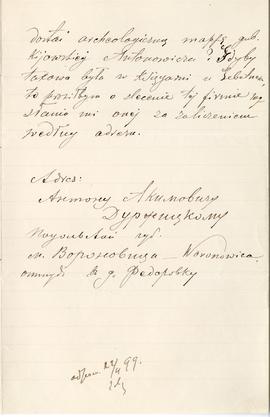 dostać archeologiczną mappę gub.
Kijowskiej Antonowicza? Gdyby
takowa była w księgarni u
to proszę o zlecenie tej firmie
słania mi onej za zaliczeniem
według adresu.
Adres:
Антону Якимовичу
Подольской губ.
м. Вороновица — Woronowica
въ д. Федоровку
99.